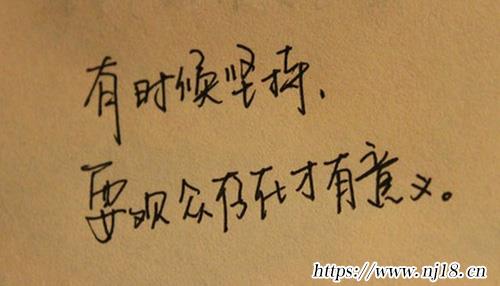 有时候坚持、
要观众存在才有意义。
https://www.nj18.cn